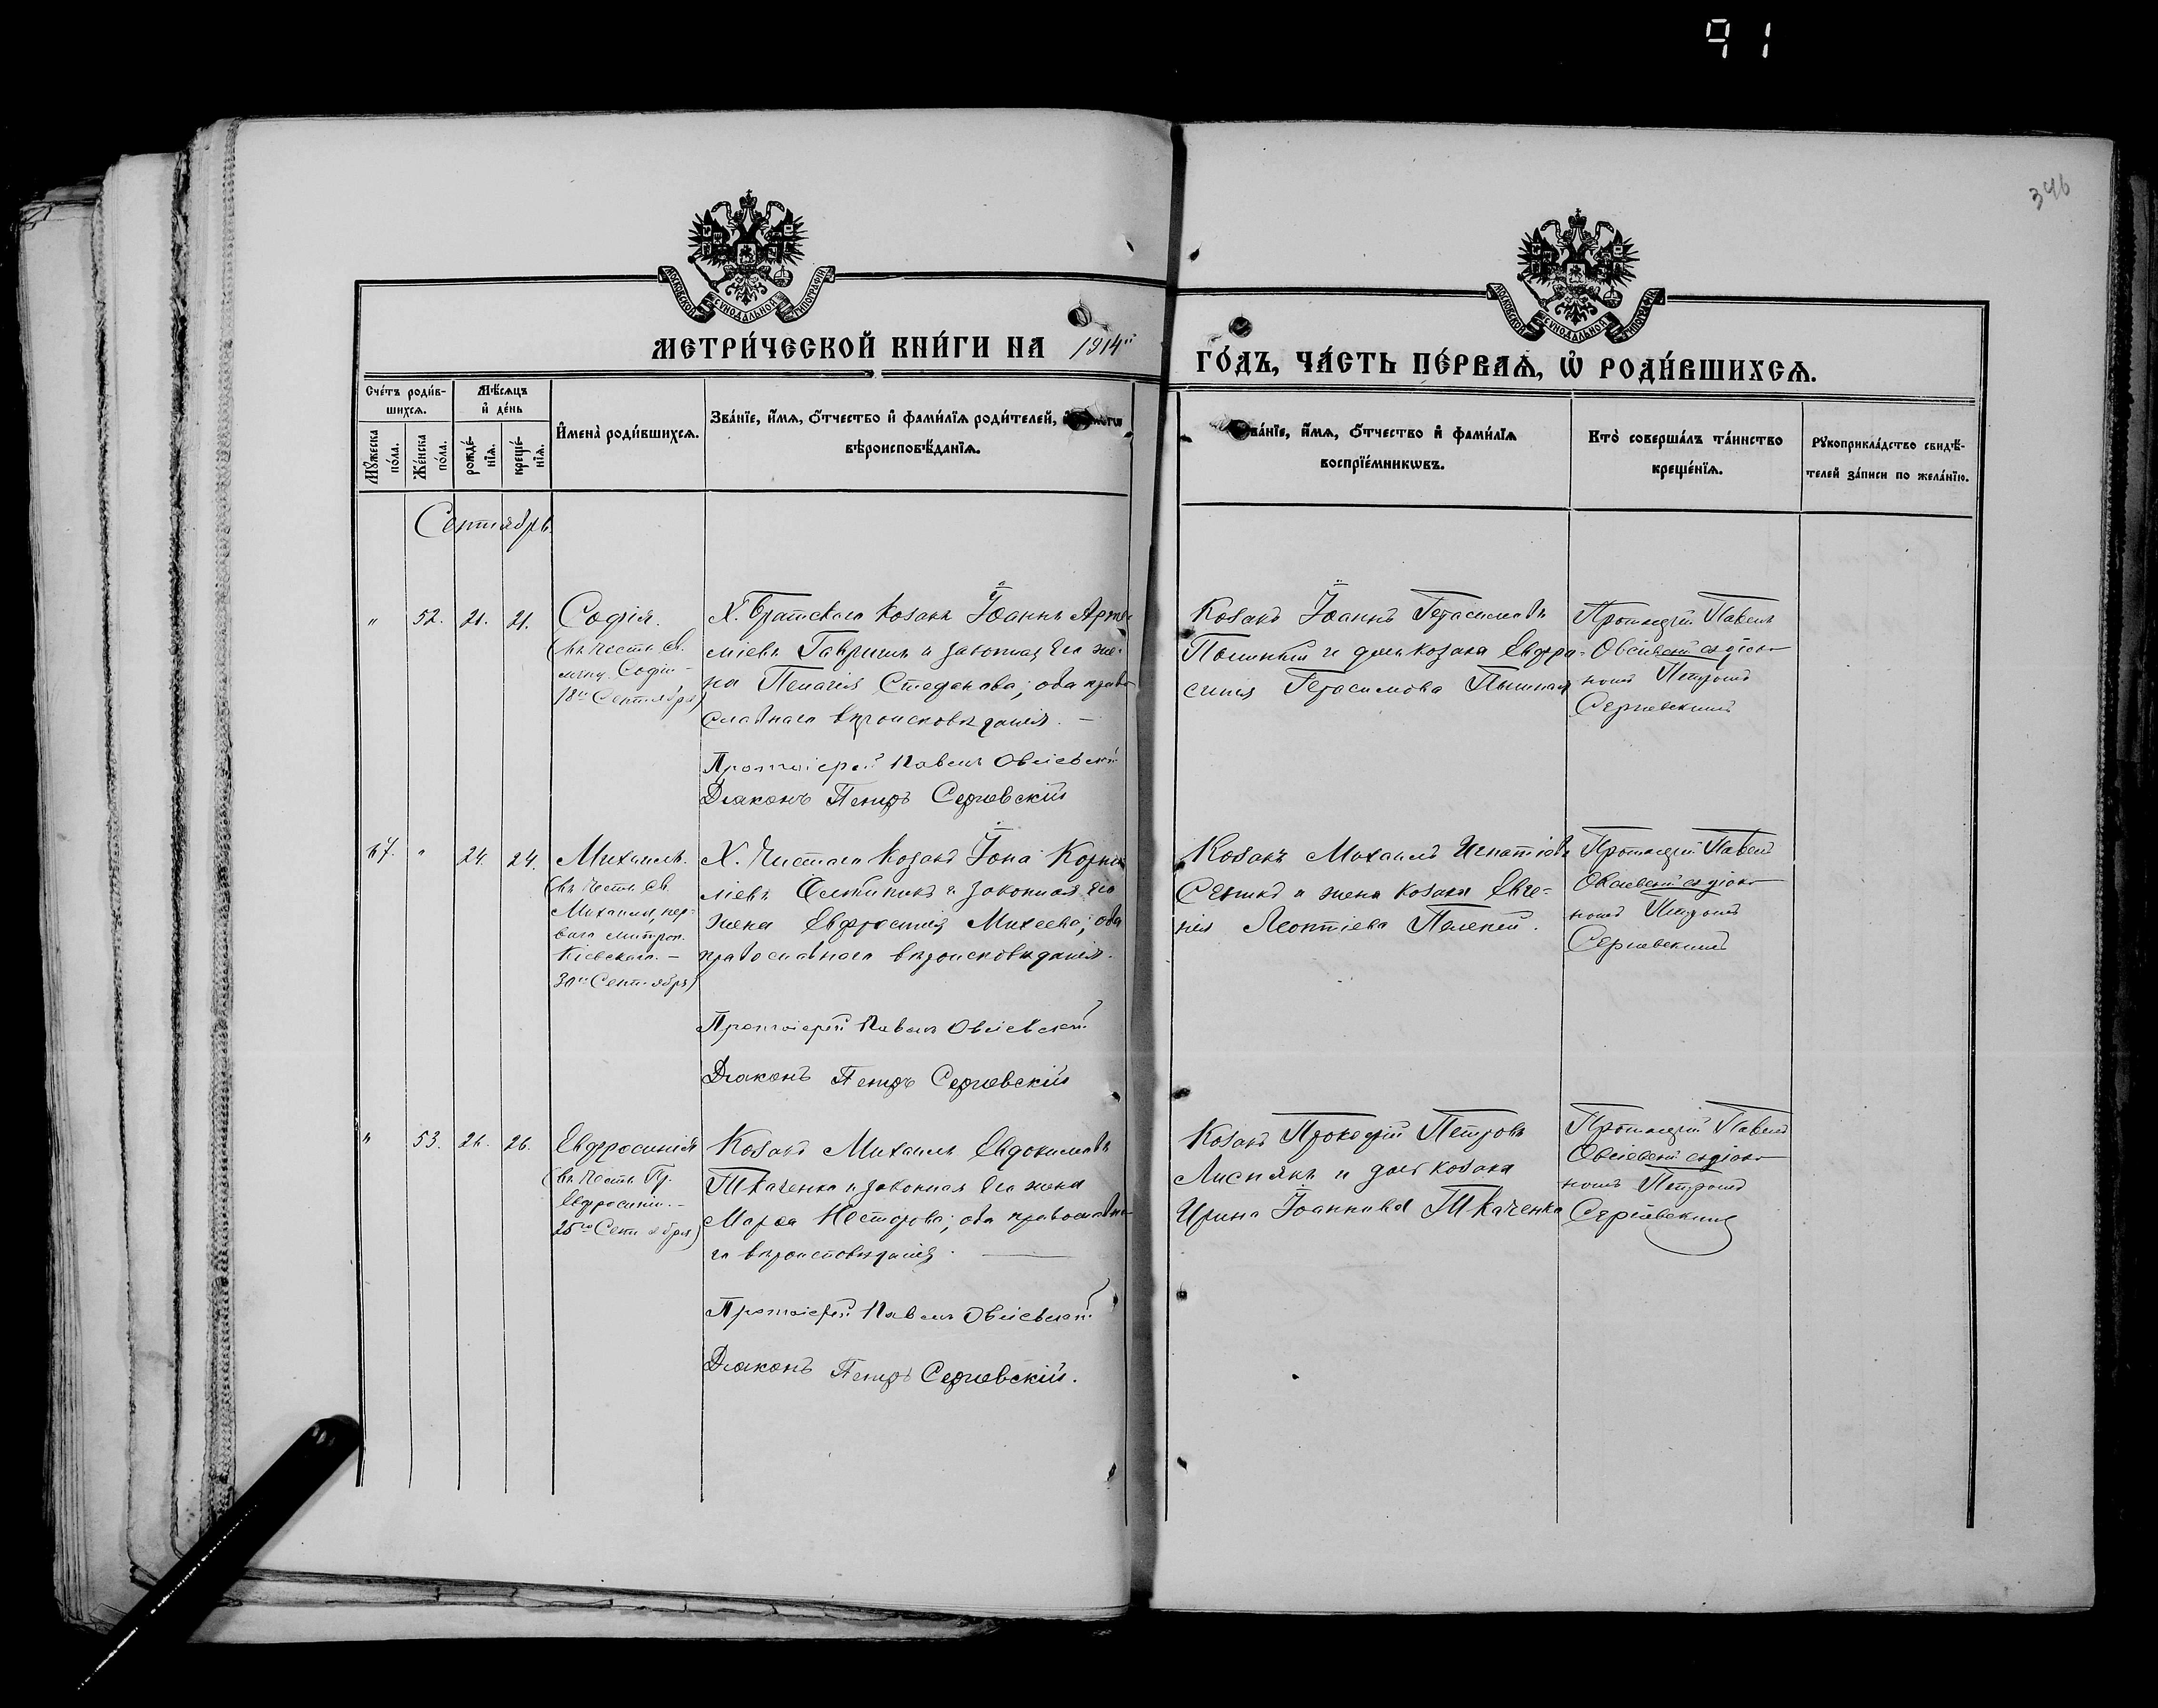 91
346
МОСКОВСКОЙ СУНОДАЛЬНОЙ ТИПОГРАФІИ
МОСКОВСКОЙ СУНОДАЛЬНОЙ ТИПОГРАФІИ
МЕТРИ́ЧЕСКОЙ КНИ́ГИ НА 1914й
ГО́ДЪ, ЧА́СТЬ ПЕ́РВАѦ, Ѡ҆ РОДИ́ВШИХСѦ.
Сче́тъ роди́в-
шихсѧ.
Мѣ́сѧцъ
и҆ де́нь
Мꙋ́жеска
по́ла.
Же́нска
по́ла.
рожде́-
нїѧ.
креще́-
нїѧ.
И҆мена̀ роди́вшихсѧ.
Зва́нїе, и҆́мѧ, ѻ҆́тчество и҆ фами́лїѧ роди́телей,
вѣроисповѣ́данїѧ.
Зва́нїе, и҆́мѧ, ѻ҆́тчество и҆ фами́лїѧ
воспрїе́мникѡвъ.
Кто̀ соверша́лъ та́инство
креще́нїѧ.
Рꙋкоприкла́дство свидѣ́-
телей за́писи по жела́нїю.
Сентябрь.
" 52. 21. 21.
Софія.
(въ честь св.
мчцы Софіи -
18го Сентября)
Х. Братскаго козакъ Іоаннъ Арте-
міевъ Гавришъ и законная его же-
на Пелагія Стефанова; оба право
славнаго вѣроисповѣданія. -
Протоіерей Павелъ Овсіевскій
Діаконъ Петръ Сергіевскій
Козакъ Іоаннъ Герасимовъ
и дочь козака Евфро-
синія Герасимова
Протоіерей Павелъ
Овсіевскій съ діако-
номъ Петромъ
Сергіевскимъ
47. " 24. 24.
Михаилъ.
(въ честь св.
Михаила, пер-
ваго митроп.
Кіевскаго. -
30го Сентября)
Х. Чистаго козакъ Іона Корни
ліевъ и законная его
жена Евфросинія Михеева; оба
православнаго вѣроисповѣданія.
Протоіерей Павелъ Овсіевскій
Діаконъ Петръ Сергіевскій
Козакъ Михаилъ Игнатіевъ
и жена козака Евге-
нія Леонтіева
Протоіерей Павелъ
Овсіевскій съ діако-
номъ Петромъ
Сергіевскимъ
" 53. 26. 26.
Евфросинія
(въ честь Пр.
Евфросиніи. -
25го Сентября)
Козакъ Михаилъ Евдокимовъ
Ткаченко и законная его жена
Марѳа Несторова; оба православна-
го вѣроисповѣданія.
Протоіерей Павелъ Овсіевскій
Діаконъ Петръ Сергіевскій.
Козакъ Прокофій Петровъ
Лиснякъ и дочь козака
Ирина Іоаннова Ткаченко
Протоіерей Павелъ
Овсіевскій съ діако-
номъ Петромъ
Сергіевскимъ